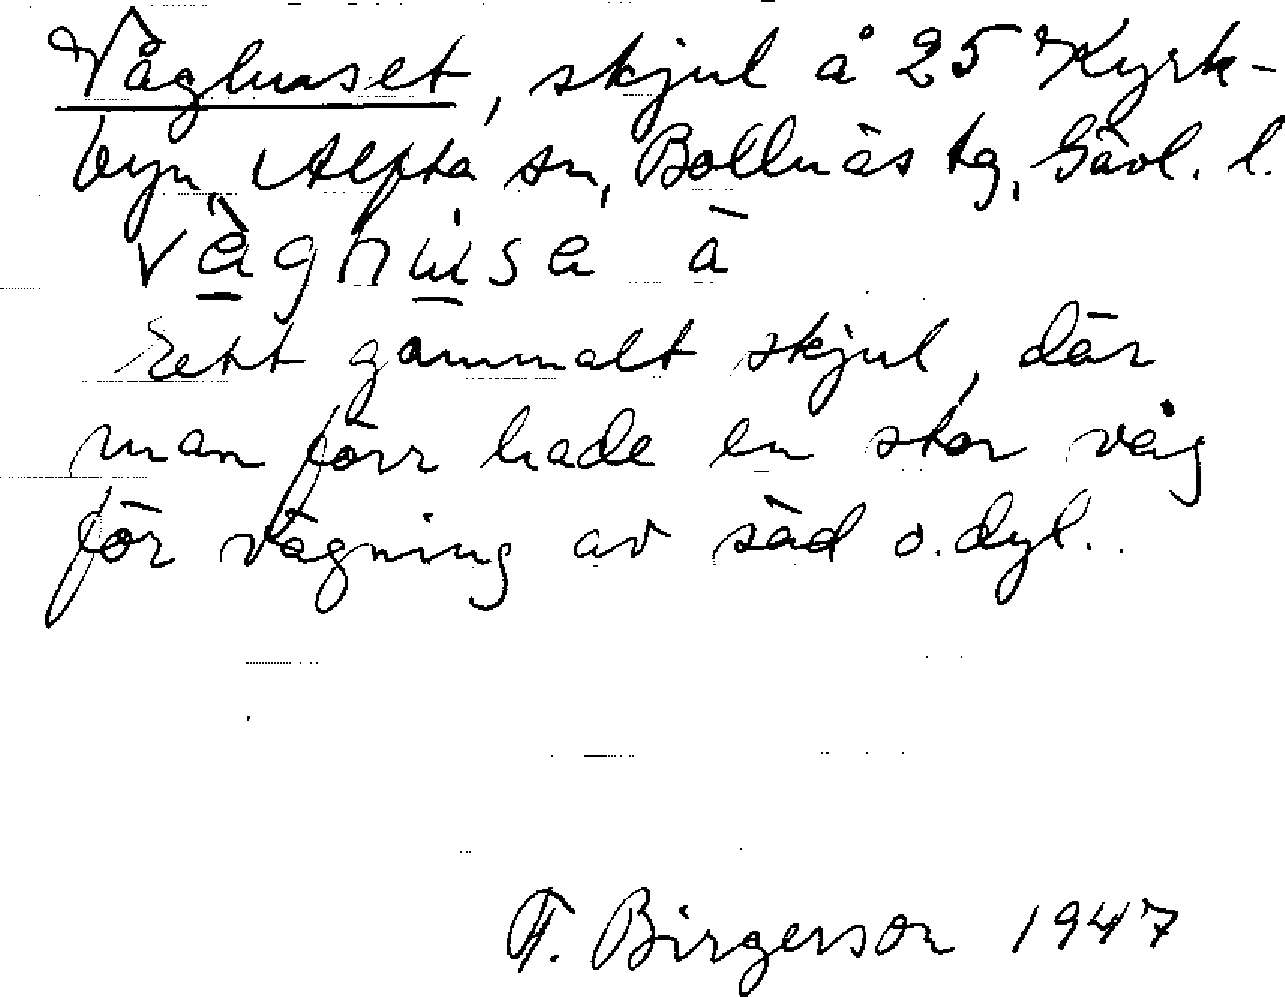 Våghuset, skjul å 25 Kyrk-
byn, Alfta sn, Bollnäs tg, Gävl. l.
våghusa ā
Ett gammalt skjul, där
man förr hade en stor våg
för vägning av säd o. dyl.
F. Birgerson 1947